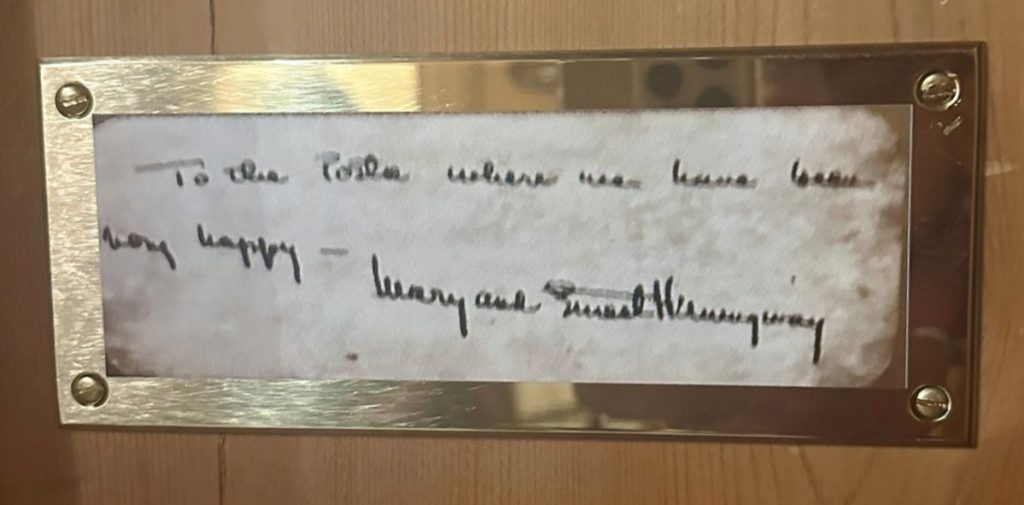 To the Posta where we have been
very happy —
Mary and Ernest Hemingway